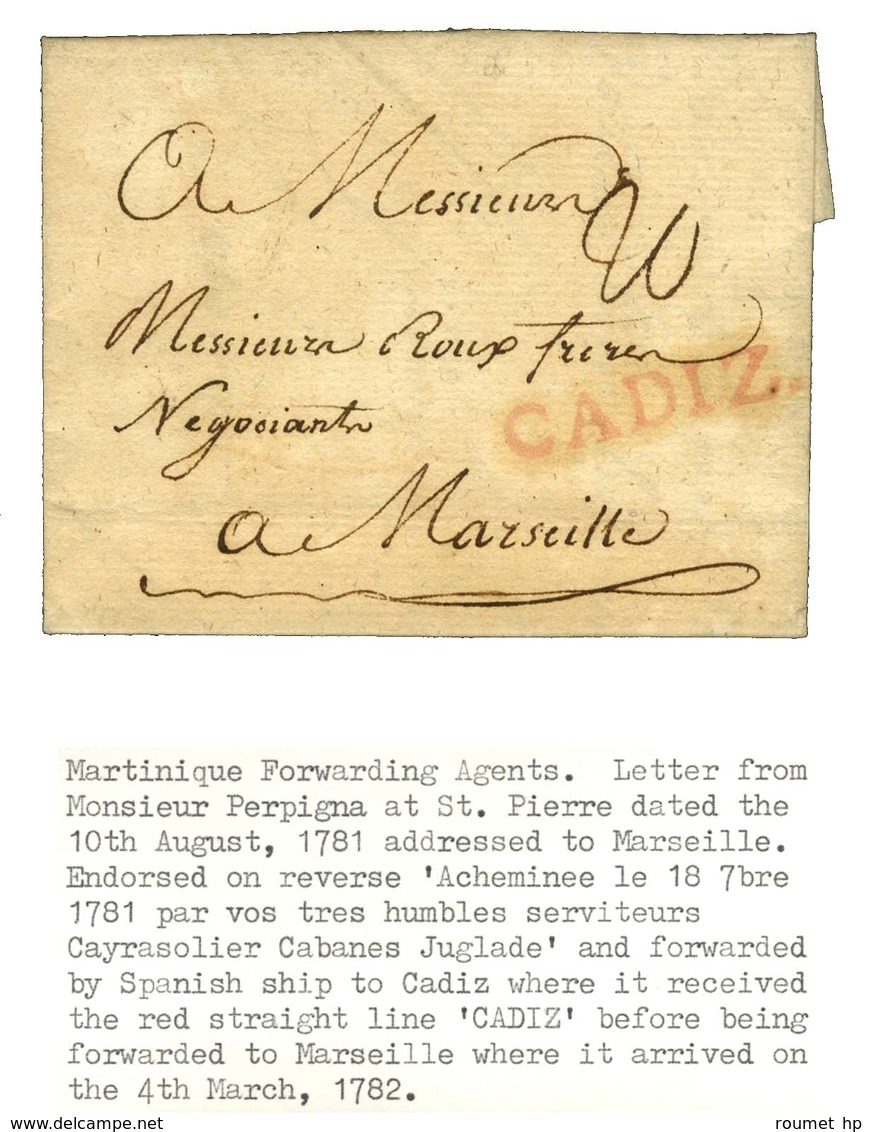 A Messieurs
Messieurs Roux freres
CADIZ.
Negociants
a Marseille
Martinique Forwarding Agents. Letter from
Monsieur Perpigna at St. Pierre dated the
10th August, 1781 addressed to Marseille.
Endorsed on reverse 'Acheminee le 18 7bre
1781 par vos tres humbles serviteurs
Cayrasolier Cabanes Juglade' and forwarded
by Spanish ship to Cadiz where it received
the red straight line 'CADIZ' before being
forwarded to Marseille where it arrived on
the 4th March, 1782.
www.delcampe.net
roumet hp